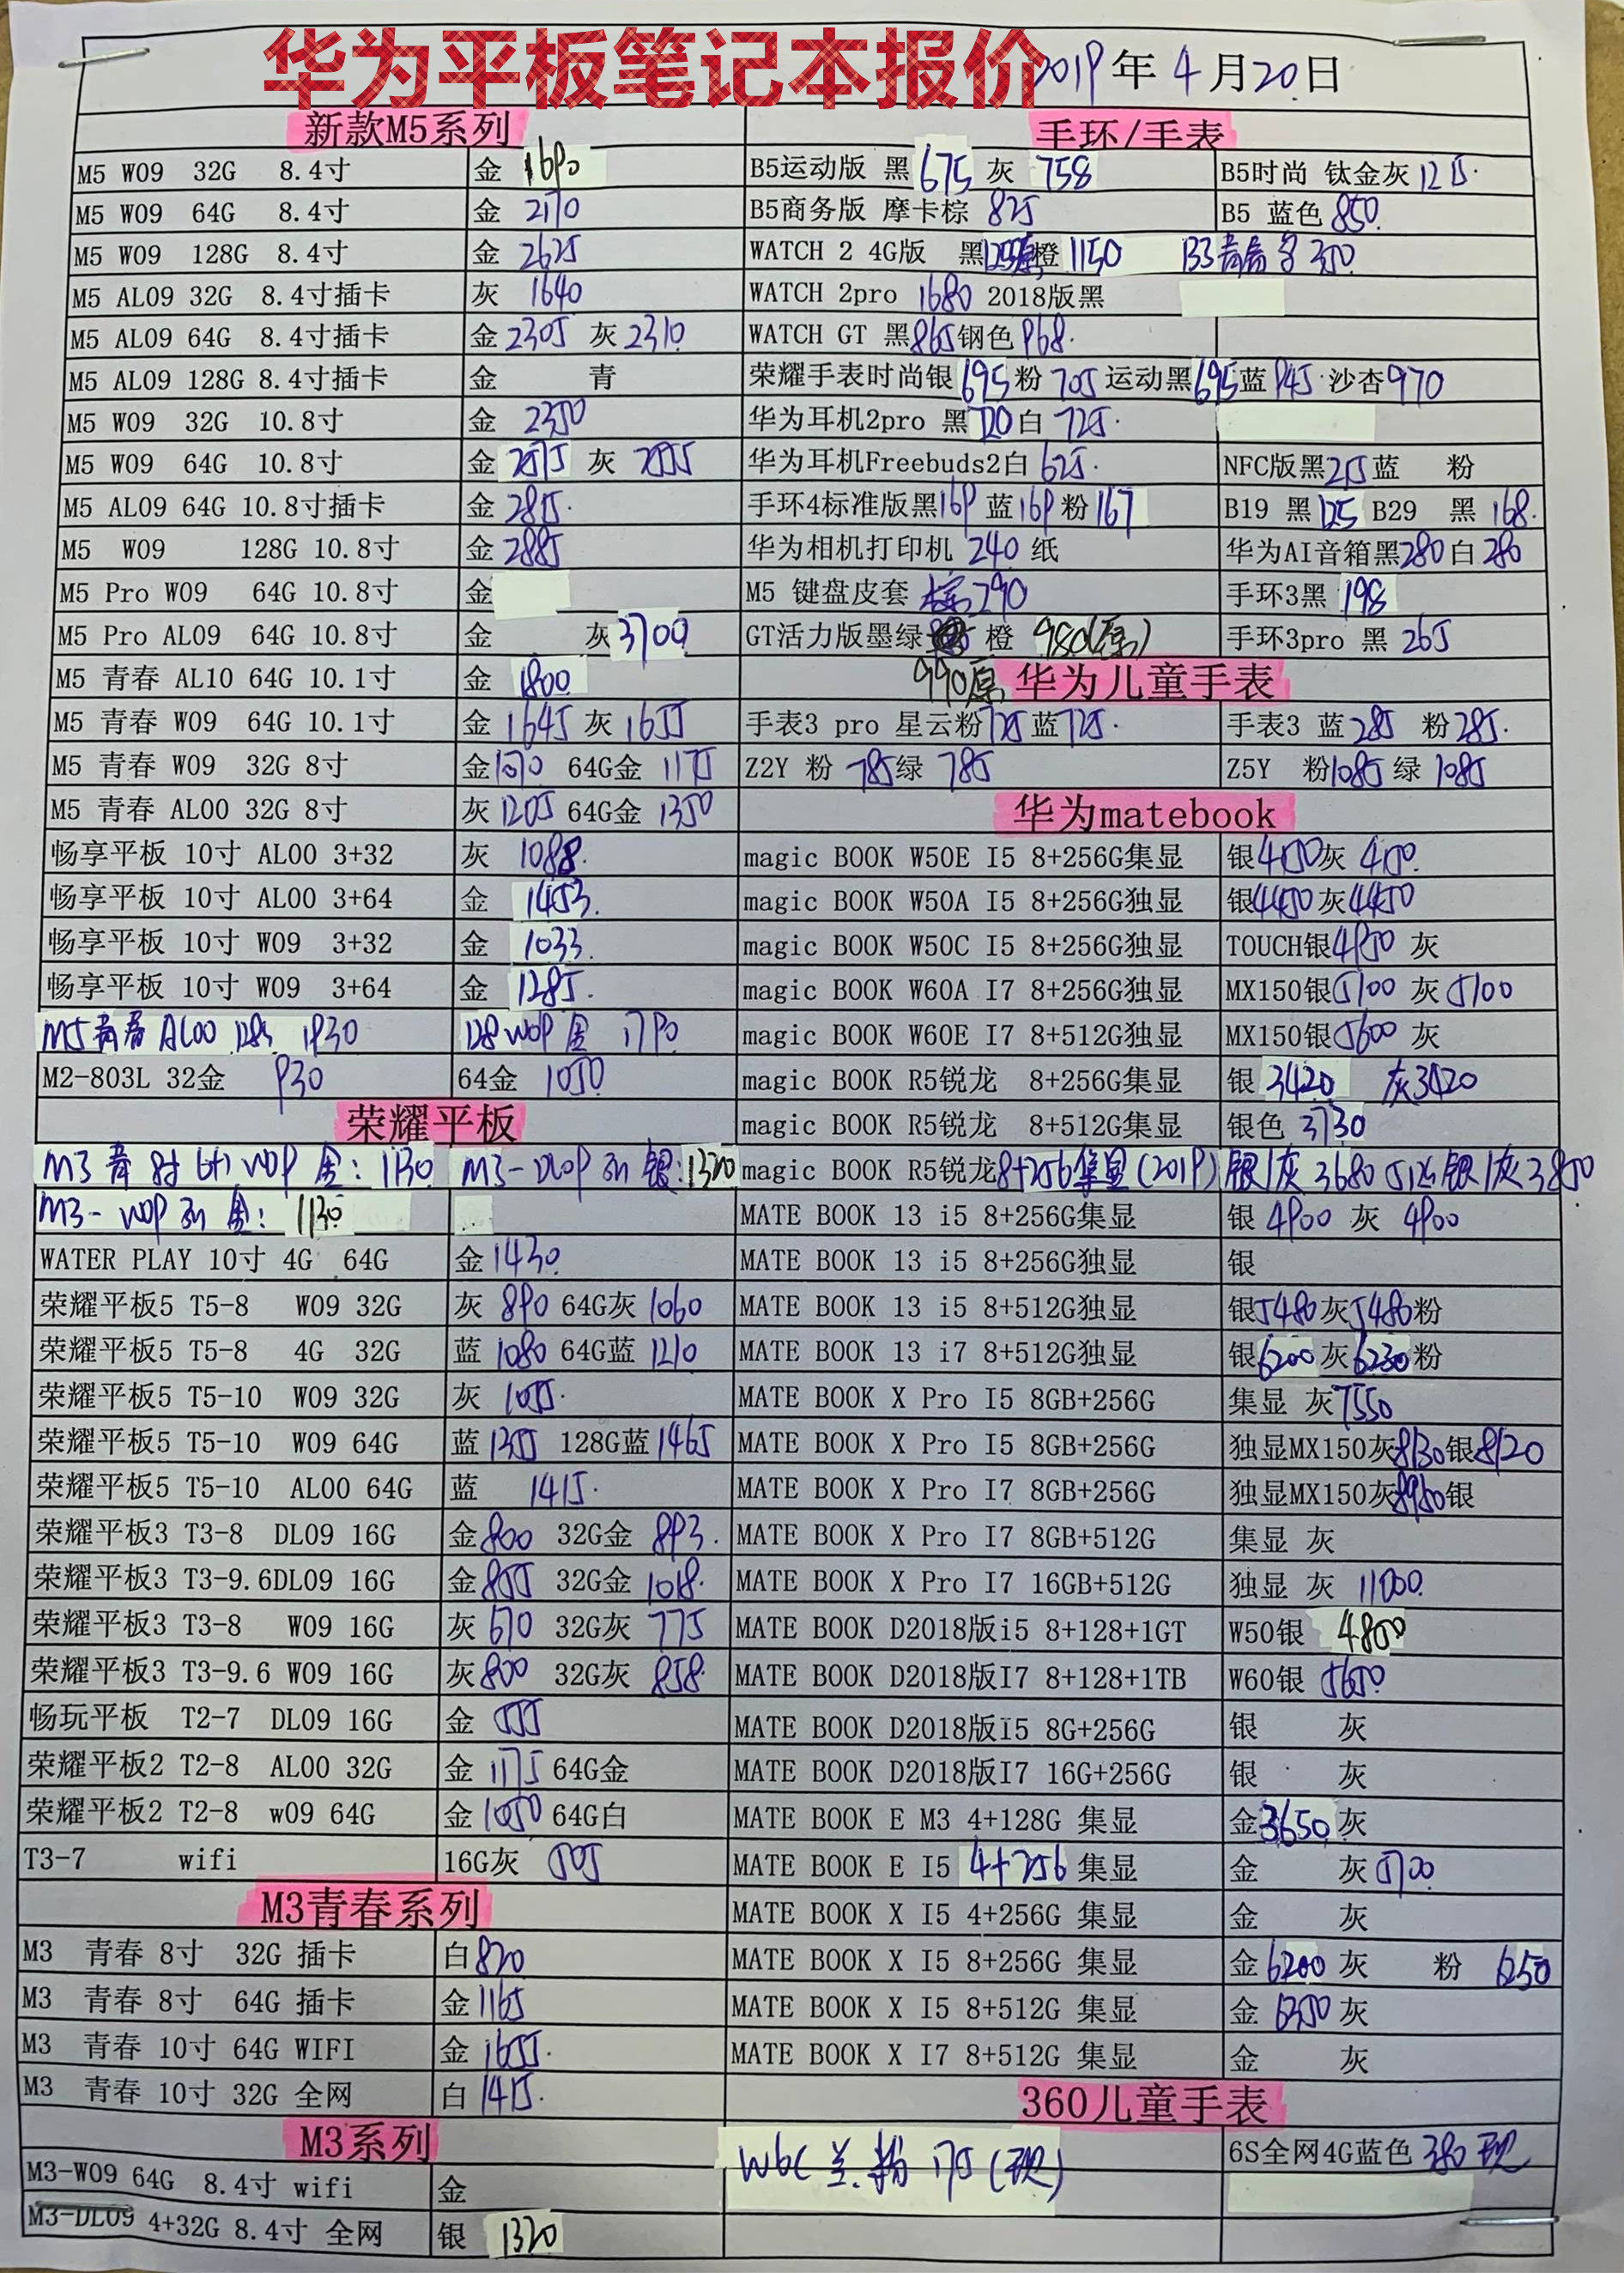 华为平板笔记本报价
2019年4月20日
新款M5系列
M5 W09 32G 8.4寸 金 1690
M5 W09 64G 8.4寸 金 2170
M5 W09 128G 8.4寸 金 2625
M5 AL09 32G 8.4寸插卡 灰 1640
M5 AL09 64G 8.4寸插卡 金 2305 灰 2310
M5 AL09 128G 8.4寸插卡 金 青
M5 W09 32G 10.8寸 金 2350
M5 W09 64G 10.8寸 金 灰
M5 AL09 64G 10.8寸插卡 金 2815
M5 W09 128G 10.8寸 金 2885
M5 Pro W09 64G 10.8寸 金
M5 Pro AL09 64G 10.8寸 金 灰 3700
M5 青春 AL10 64G 10.1寸 金 1800
M5 青春 W09 64G 10.1寸 金 1645 灰 1655
M5 青春 W09 32G 8寸 金 1070 64G金 1175
M5 青春 AL00 32G 8寸 灰 1205 64G金 1350
畅享平板 10寸 AL00 3+32 灰 1088
畅享平板 10寸 AL00 3+64 金 1453
畅享平板 10寸 W09 3+32 金 1033
畅享平板 10寸 W09 3+64 金 1285
M5青春 AL00 128G 1930 128 W09 金 1790
M2-803L 32金 930 64金 1050
荣耀平板
M3 青 8寸 W09 金: 1130 M3-DL09 银: 1320
M3- W09 金: 1130
WATER PLAY 10寸 4G 64G 金 1430
荣耀平板5 T5-8 W09 32G 灰 890 64G灰 1060
荣耀平板5 T5-8 4G 32G 蓝 1080 64G蓝 1210
荣耀平板5 T5-10 W09 32G 灰 1055
荣耀平板5 T5-10 W09 64G 蓝 1355 128G蓝 1465
荣耀平板5 T5-10 AL00 64G 蓝 1415
荣耀平板3 T3-8 DL09 16G 金 800 32G金 893
荣耀平板3 T3-9.6DL09 16G 金 855 32G金 1018
荣耀平板3 T3-8 W09 16G 灰 670 32G灰 775
荣耀平板3 T3-9.6 W09 16G 灰 800 32G灰 858
畅玩平板 T2-7 DL09 16G 金 555
荣耀平板2 T2-8 AL00 32G 金 1175 64G金
荣耀平板2 T2-8 w09 64G 金 1050 64G白
T3-7 wifi 16G灰 505
M3青春系列
M3 青春 8寸 32G 插卡 白 820
M3 青春 8寸 64G 插卡 金 1165
M3 青春 10寸 64G WIFI 金 1655
M3 青春 10寸 32G 全网 白 1415
M3系列
M3-W09 64G 8.4寸 wifi 金
M3-DL09 4+32G 8.4寸 全网 银 1320
手环/手表
B5运动版 黑 675 灰 758 B5时尚 钛金灰 1215
B5商务版 摩卡棕 825 B5 蓝色 850
WATCH 2 4G版 黑 橙 1150 B3青春 350
WATCH 2pro 1680 2018版黑
WATCH GT 黑 865 钢色 968
荣耀手表时尚银 695 粉 705 运动黑 695 蓝 945 沙杏 970
华为耳机2pro 黑 720 白 725
华为耳机Freebuds2白 625 NFC版黑 215 蓝 粉
手环4标准版黑 169 蓝 169 粉 167 B19 黑 125 B29 黑 168
华为相机打印机 240 纸 华为AI音箱黑 280 白 280
M5 键盘皮套 棕 290 手环3黑 198
GT活力版墨绿 橙 980(原) 手环3pro 黑 265
990原
华为儿童手表
手表3 pro 星云粉 725 蓝 725 手表3 蓝 285 粉 285
Z2Y 粉 785 绿 785 Z5Y 粉 1085 绿 1085
华为matebook
magic BOOK W50E I5 8+256G集显 银 4150 灰 4150
magic BOOK W50A I5 8+256G独显 银 4450 灰 4450
magic BOOK W50C I5 8+256G独显 TOUCH银 4950 灰
magic BOOK W60A I7 8+256G独显 MX150银 5100 灰 5100
magic BOOK W60E I7 8+512G独显 MX150银 5600 灰
magic BOOK R5锐龙 8+256G集显 银 3420 灰3420
magic BOOK R5锐龙 8+512G集显 银色 3730
magic BOOK R5锐龙 8+256集显(2019) 银/灰 3680 512G银/灰 3850
MATE BOOK 13 i5 8+256G集显 银 4900 灰 4900
MATE BOOK 13 i5 8+256G独显 银
MATE BOOK 13 i5 8+512G独显 银 5480 灰 5480 粉
MATE BOOK 13 i7 8+512G独显 银 6200 灰 6230 粉
MATE BOOK X Pro I5 8GB+256G 集显 灰 7550
MATE BOOK X Pro I5 8GB+256G 独显MX150灰 8130 银 8120
MATE BOOK X Pro I7 8GB+256G 独显MX150灰 8950 银
MATE BOOK X Pro I7 8GB+512G 集显 灰
MATE BOOK X Pro I7 16GB+512G 独显 灰 11000
MATE BOOK D2018版i5 8+128+1GT W50银 4800
MATE BOOK D2018版I7 8+128+1TB W60银 5650
MATE BOOK D2018版I5 8G+256G 银 灰
MATE BOOK D2018版I7 16G+256G 银 灰
MATE BOOK E M3 4+128G 集显 金 3650 灰
MATE BOOK E I5 4+256 集显 金 灰 5700
MATE BOOK X I5 4+256G 集显 金 灰
MATE BOOK X I5 8+256G 集显 金 6200 灰 粉 6250
MATE BOOK X I5 8+512G 集显 金 6350 灰
MATE BOOK X I7 8+512G 集显 金 灰
360儿童手表
W6C 兰.粉 175 (现) 6S全网4G蓝色 380 现